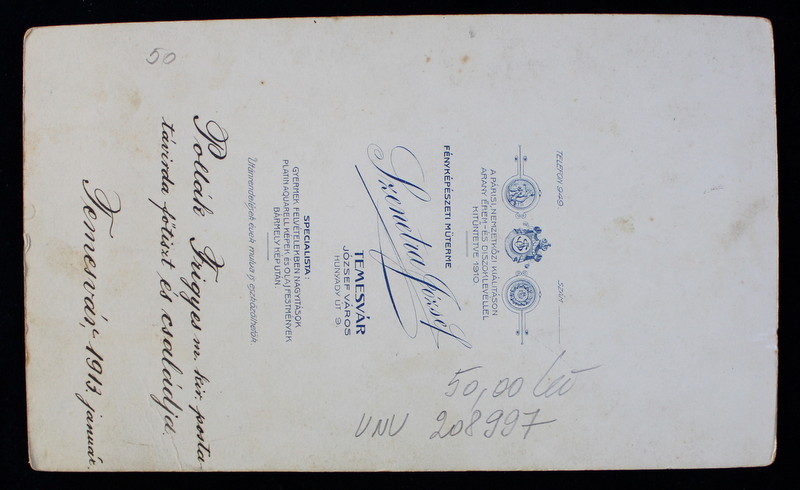 TELEFON 949
SZÁM
A PÁRISI, NEMZETKÖZI KIÁLLITÁSON
ARANY ÉREM-ÉS DISZOKLEVÉLLEL
KITÜNTETVE 1910
FÉNYKÉPÉSZETI MŰTERME
József
TEMESVÁR
JÓZSEF VÁROS
HUNYADY ÚT 9.
SPECIALISTA:
GYERMEK FELVÉTELEKBEN NAGYITÁSOK
PLATIN AQUARELL KÉPEK ÉS OLAJFESTMÉNYEK
BÁRMELY KÉP UTÁN.
Utánrendelések évek mulva is eszközölhetők
Pollák Frigyes m. kir. posta-
távirda főtiszt és családja.
Temesvár, 1913. január.
50
50,00 lei
UNU 208997